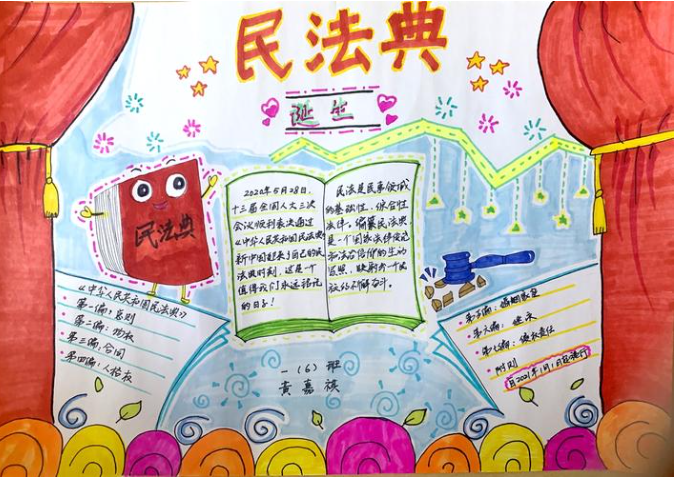 民法典
诞生
民法典
2020年5月28日,
十三届全国人大三次
会议顺利表决通过
《中华人民共和国民法典》
新中国迎来了自己的民
法典时刻,这是一个
值得我们永远铭记
的日子!
民法是民事领域
的基础性、综合性
法律。编纂民法典
是一个国家法律
和法治信仰的生动
《中华人民共和国民法典》
第一编:总则
第二编:物权
第三编:合同
第四编:人格权
第五编:婚姻家庭
第六编:继承
第七编:侵权责任
附则
2021年1月1日起施行
一(6)班
黄嘉